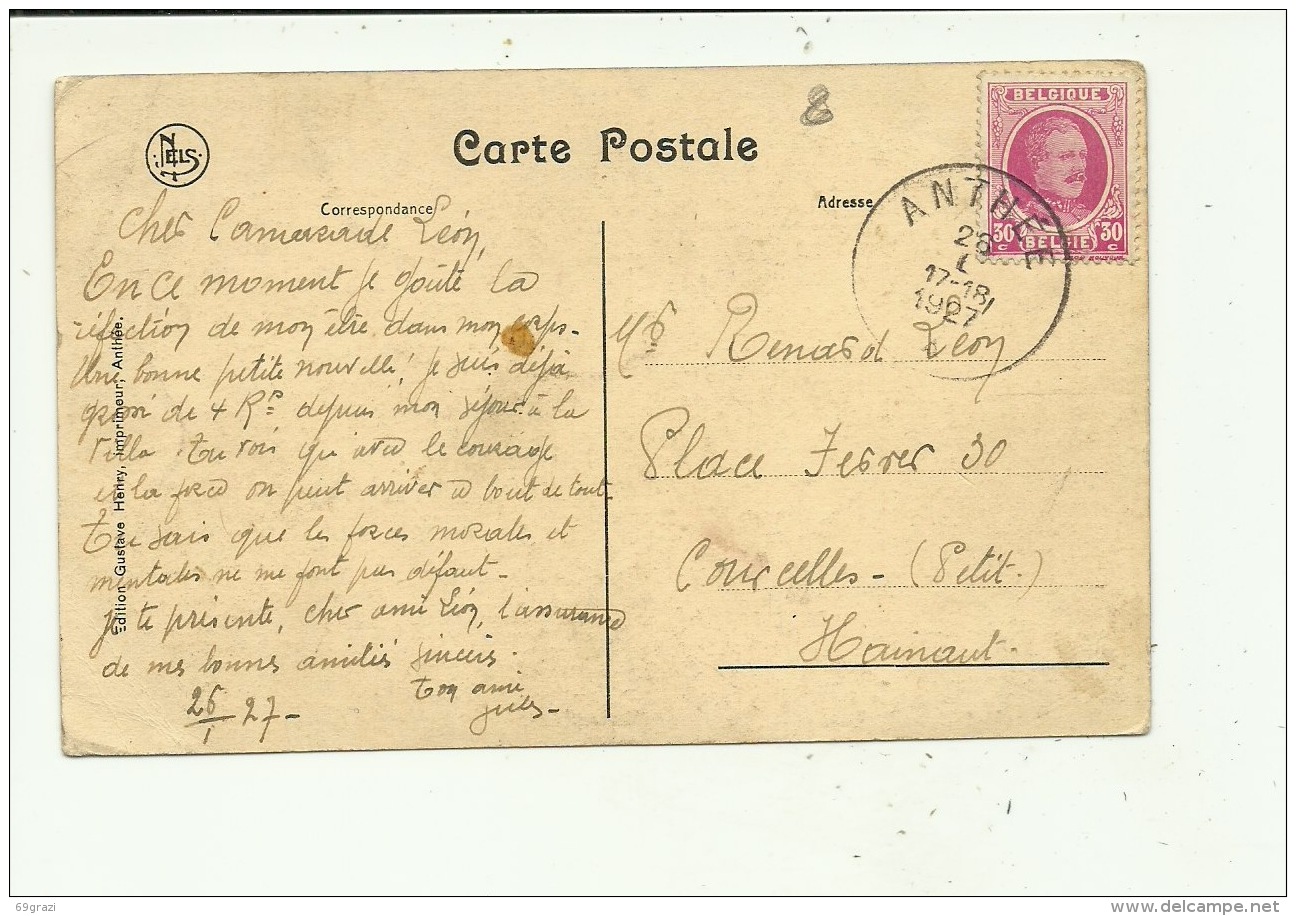 NELS
Carte Postale
8
Correspondance
Adresse
BELGIQUE
30 c BELGIE 30 c
ANTHÉE
26
1
17-18
1927
Cher Camarade Léon,
En ce moment je goûte la
réfection de mon être dans mon corps-
Une bonne petite nouvelle! Je suis déjà
grossi de 4 K.os depuis mon séjour à la
Villa Tu vois qu'avec le courage
et la force on peut arriver à bout de tout-
Tu sais que les forces morales et
mentales ne me font pas défaut-
je te présente, cher ami Léon, l'assurance
de mes bonnes amitiés sincères.
Ton ami
Jules-
26/1 27-
Edition Gustave Henry, imprimeur, Anthée.
Mr Renard Léon
Place Ferrer 30
Courcelles- (Petit-)
Hainaut-
69grazi
www.delcampe.net